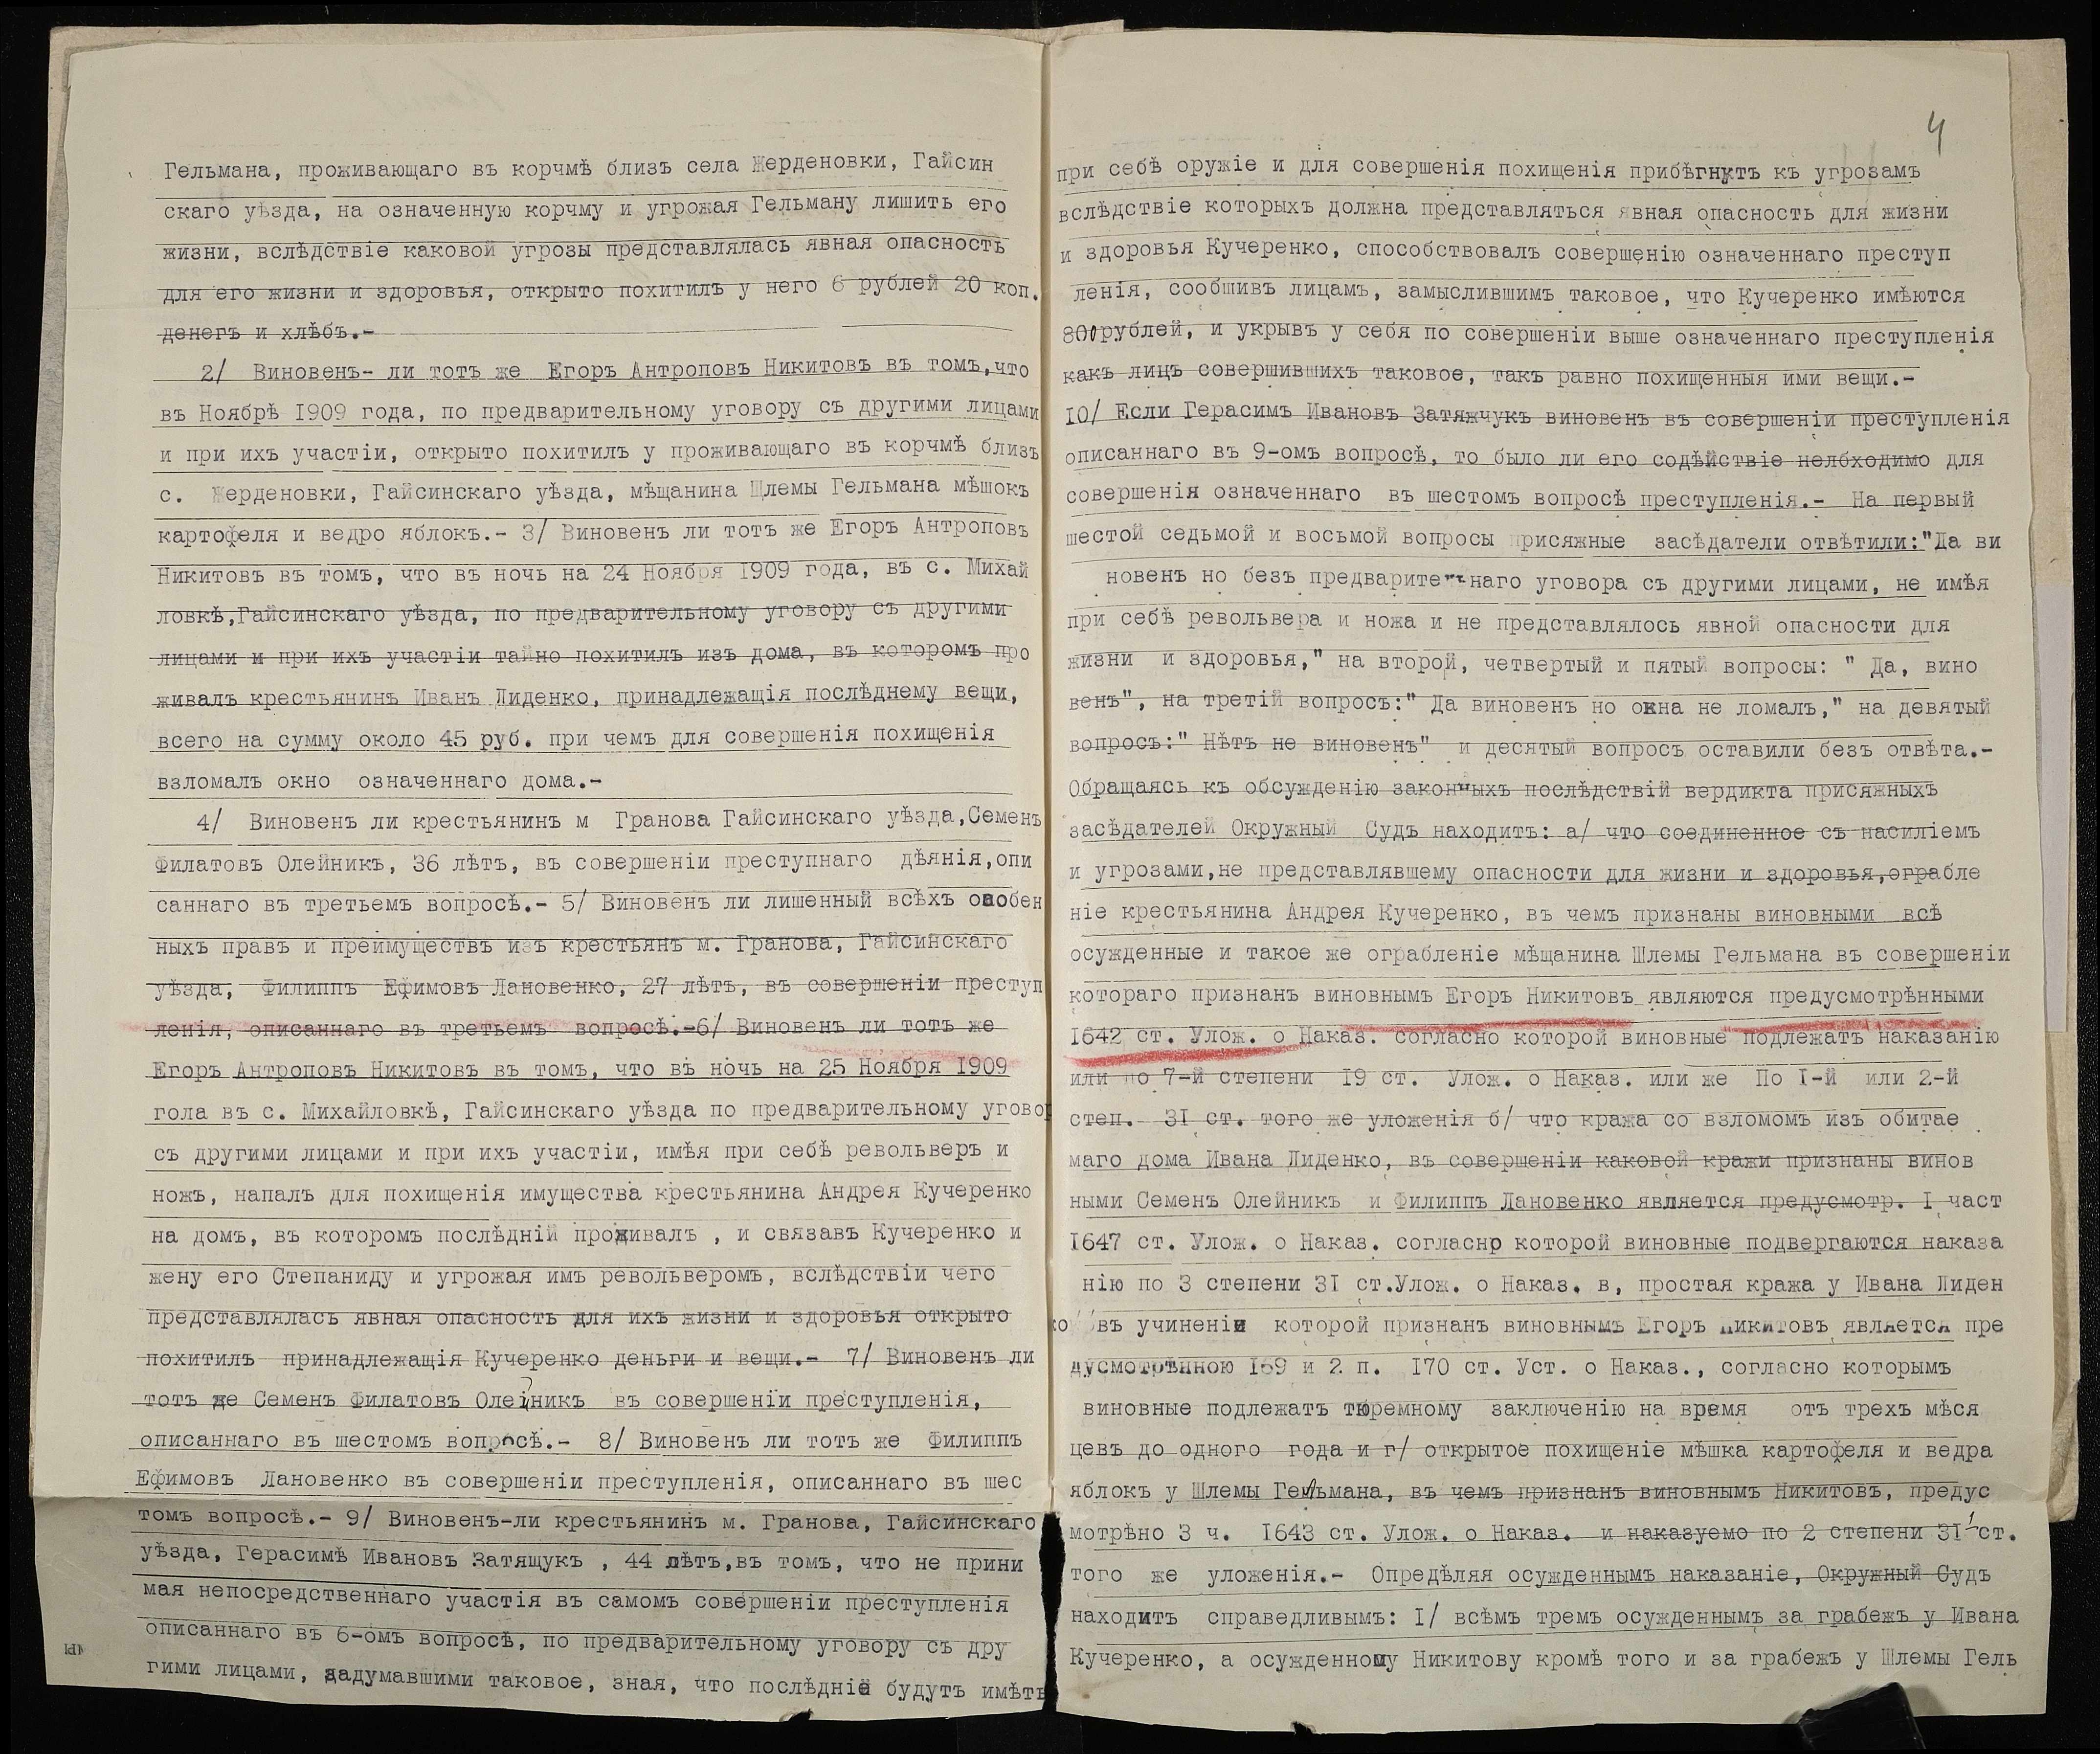 Гельмана, проживающаго въ корчмѣ близъ села Жерденовки, Гайсин
скаго уѣзда, на означенную корчму и угрожая Гельману лишить его
жизни, вслѣдствіе каковой угрозы представлялась явная опасность
для его жизни и здоровья, открыто похитилъ у него 6 рублей 20 коп.
денегъ и хлѣбъ.-
2/ Виновенъ- ли тотъ же Егоръ Антроповъ Никитовъ въ томъ,что
въ Ноябрѣ 1909 года, по предварительному уговору съ другими лицами
и при ихъ участіи, открыто похитилъ у проживающаго въ корчмѣ близъ
с. Жерденовки, Гайсинскаго уѣзда, мѣщанина Шлемы Гельмана мѣшокъ
картофеля и ведро яблокъ.- 3/ Виновенъ ли тотъ же Егоръ Антроповъ
Никитовъ въ томъ, что въ ночь на 24 Ноября 1909 года, въ с. Михай
ловкѣ,Гайсинскаго уѣзда, по предварительному уговору съ другими
лицами и при ихъ участіи тайно похитилъ изъ дома, въ которомъ про
живалъ крестьянинъ Иванъ Лиденко, принадлежащія послѣднему вещи,
всего на сумму около 45 руб. при чемъ для совершенія похищенія
взломалъ окно означеннаго дома.-
4/ Виновенъ ли крестьянинъ м Гранова Гайсинскаго уѣзда,Семенъ
Филатовъ Олейникъ, 36 лѣтъ, въ совершеніи преступнаго дѣянія,опи
саннаго въ третьемъ вопросѣ.- 5/ Виновенъ ли лишенный всѣхъ особен
ныхъ правъ и преимуществъ изъ крестьянъ м. Гранова, Гайсинскаго
уѣзда, Филиппъ Ефимовъ Лановенко, 27 лѣтъ, въ совершеніи преступ
ленія, описаннаго въ третьемъ вопросѣ.-6/ Виновенъ ли тотъ же
Егоръ Антроповъ Никитовъ въ томъ, что въ ночь на 25 Ноября 1909
гола въ с. Михайловкѣ, Гайсинскаго уѣзда по предварительному уговор
съ другими лицами и при ихъ участіи, имѣя при себѣ револьверъ и
ножъ, напалъ для похищенія имущества крестьянина Андрея Кучеренко
на домъ, въ которомъ послѣдній проживалъ , и связавъ Кучеренко и
жену его Степаниду и угрожая имъ револьверомъ, вслѣдствіи чего
представлялась явная опасность для ихъ жизни и здоровья открыто
похитилъ принадлежащія Кучеренко деньги и вещи.- 7/ Виновенъ ли
тотъ же Семенъ Филатовъ Олейникъ въ совершеніи преступленія,
описаннаго въ шестомъ вопросѣ.- 8/ Виновенъ ли тотъ же Филиппъ
Ефимовъ Лановенко въ совершеніи преступленія, описаннаго въ шес
томъ вопросѣ.- 9/ Виновенъ-ли крестьянинъ м. Гранова, Гайсинскаго
уѣзда, Герасимѣ Ивановъ Затящукъ , 44 лѣтъ,въ томъ, что не прини
мая непосредственнаго участія въ самомъ совершеніи преступленія
описаннаго въ 6-омъ вопросѣ, по предварительному уговору съ дру
гими лицами, задумавшими таковое, зная, что послѣдніе будутъ имѣть
4
при себѣ оружіе и для совершенія похищенія прибѣгнутъ къ угрозамъ
вслѣдствіе которыхъ должна представляться явная опасность для жизни
и здоровья Кучеренко, способствовалъ совершенію означеннаго преступ
ленія, сообшивъ лицамъ, замыслившимъ таковое, что Кучеренко имѣются
800рублей, и укрывъ у себя по совершеніи выше означеннаго преступленія
какъ лицъ совершившихъ таковое, такъ равно похищенныя ими вещи.-
10/ Если Герасимъ Ивановъ Затяжчукъ виновенъ въ совершеніи преступленія
описаннаго въ 9-омъ вопросѣ, то было ли его содѣйствіе нелбходимо для
совершенія означеннаго въ шестомъ вопросѣ преступленія.- На первый
шестой седьмой и восьмой вопросы присяжные засѣдатели отвѣтили:"Да ви
новенъ но безъ предварительнаго уговора съ другими лицами, не имѣя
при себѣ револьвера и ножа и не представлялось явной опасности для
жизни и здоровья," на второй, четвертый и пятый вопросы: " Да, вино
венъ", на третій вопросъ:" Да виновенъ но окна не ломалъ," на девятый
вопросъ:" Нѣтъ не виновенъ" и десятый вопросъ оставили безъ отвѣта.-
Обращаясь къ обсужденію законныхъ послѣдствій вердикта присяжныхъ
засѣдателей Окружный Судъ находитъ: а/ что соединенное съ насиліемъ
и угрозами,не представлявшему опасности для жизни и здоровья,ограбле
ніе крестьянина Андрея Кучеренко, въ чемъ признаны виновными всѣ
осужденные и такое же ограбленіе мѣщанина Шлемы Гельмана въ совершеніи
котораго признанъ виновнымъ Егоръ Никитовъ являются предусмотрѣнными
1642 ст. Улож. о Наказ. согласно которой виновные подлежатъ наказанію
или по 7-й степени 19 ст. Улож. о Наказ. или же По 1-й или 2-й
степ. 31 ст. того же уложенія б/ что кража со взломомъ изъ обитае
маго дома Ивана Лиденко, въ совершеніи каковой кражи признаны винов
ными Семенъ Олейникъ и Филиппъ Лановенко является предусмотр. 1 част
1647 ст. Улож. о Наказ. согласно которой виновные подвергаются наказа
нію по 3 степени 31 ст.Улож. о Наказ. в, простая кража у Ивана Лиден
ко въ учиненіи которой признанъ виновнымъ Егоръ Никитовъ является пре
дусмотрѣнною 169 и 2 п. 170 ст. Уст. о Наказ., согласно которымъ
виновные подлежатъ тюремному заключенію на время отъ трехъ мѣся
цевъ до одного года и г/ открытое похищеніе мѣшка картофеля и ведра
яблокъ у Шлемы Гельмана, въ чемъ признанъ виновнымъ Никитовъ, предус
мотрѣно 3 ч. 1643 ст. Улож. о Наказ. и наказуемо по 2 степени 31¹ ст.
того же уложенія.- Опредѣляя осужденнымъ наказаніе, Окружный Судъ
находитъ справедливымъ: 1/ всѣмъ тремъ осужденнымъ за грабежъ у Ивана
Кучеренко, а осужденному Никитову кромѣ того и за грабежъ у Шлемы Гель